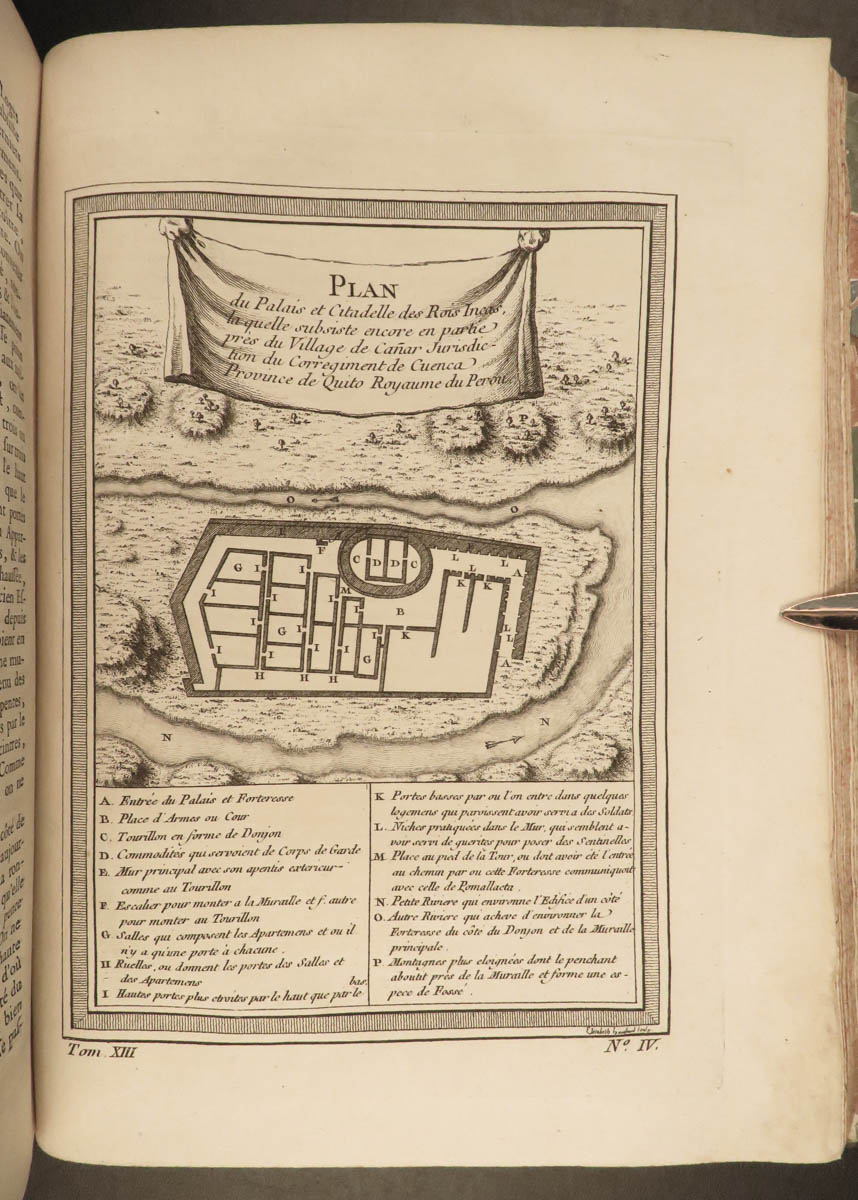 PLAN
du Palais et Citadelle des Rois Incas,
la quelle subsiste encore en partie
près du Village de Cañar Jurisdic-
tion du Corregiment de Cuenca
Province de Quito Royaume du Perou
P
O
O
E
F
C
D
D
C
L
L
L
A
G
I
I
K
K
I
I
M
I
B
L
L
I
G
I
I
K
I
I
G
A
H
H
H
N
N
A. Entrée du Palais et Forteresse
B. Place d'Armes ou Cour
C. Tourillon en forme de Donjon
D. Commodités qui servoient de Corps de Garde
E. Mur principal avec son apentis exterieur
comme au Tourillon
F. Escalier pour monter a la Muraille et f. autre
pour monter au Tourillon
G. Salles qui composent les Apartemens et ou il
n'y a qu'une porte à chacune.
H Ruelles, ou donnent les portes des Salles et
des Apartemens
I Hautes portes plus etroites par le haut que par le
bas.
K Portes basses par ou l'on entre dans quelques
logemens qui paroissent avoir servi a des Soldats.
L. Niches pratiquées dans le Mur, qui semblent a-
voir servi de guerites pour poser des Sentinelles
M. Place au pied de la Tour, ou doit avoir été l'entrée
au chemin par ou cette Forteresse communiquoit
avec celle de Pomallacta.
N. Petite Riviere qui environne l'Edifice d'un côté
O. Autre Riviere qui acheve d'environner la
Forteresse du côte du Donjon et de la Muraille
principale.
P. Montagnes plus eloignées dont le penchant
aboutit près de la Muraille et forme une es-
pece de Fossé.
Tom. XIII
Nº. IV.